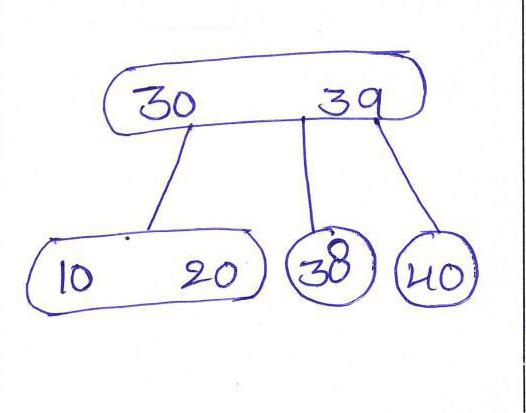 30 39
10 20 38 40